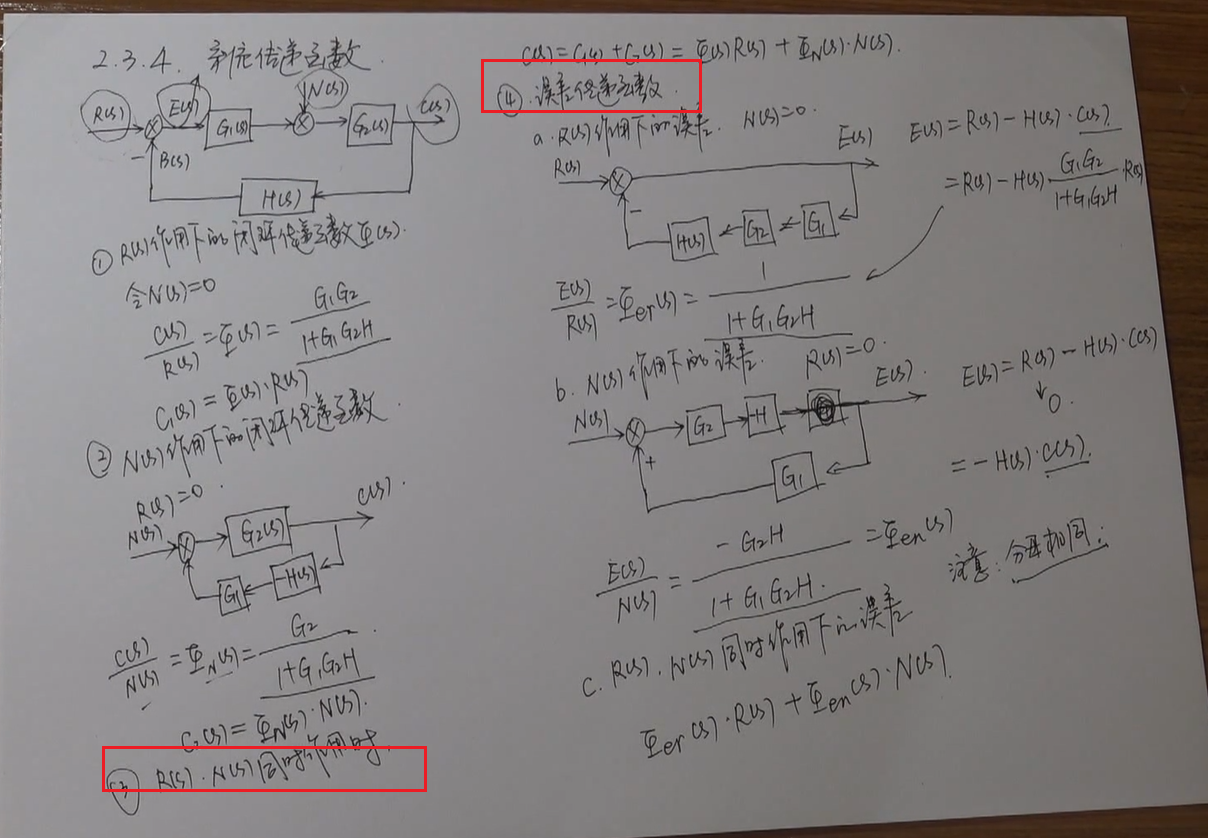 2.3.4. 系统传递函数
R(s) E(s) G₁(s) N(s) G₂(s) C(s)
- B(s)
H(s)
① R(s)作用下的闭环传递函数Φ(s).
令N(s)=0
C(s)/R(s) = Φ(s) = G₁G₂/(1+G₁G₂H)
C₁(s) = Φ(s)·R(s)
② N(s)作用下的闭环传递函数.
R(s)=0.
N(s) G₂(s) C(s).
G₁ -H(s)
C(s)/N(s) = Φ_N(s) = G₂/(1+G₁G₂H)
C₂(s) = Φ_N(s)·N(s).
③ R(s).N(s)同时作用时.
C(s) = C₁(s) + C₂(s) = Φ(s)R(s) + Φ_N(s)·N(s).
④.误差传递函数.
a.R(s)作用下的误差. N(s)=0.
R(s) E(s)
- H(s) G₂ G₁
E(s) = R(s) - H(s)·C(s)
= R(s) - H(s)·G₁G₂/(1+G₁G₂H)·R(s)
E(s)/R(s) = Φer(s) = 1/(1+G₁G₂H)
b. N(s)作用下的误差. R(s)=0.
N(s) G₂ -H E(s).
+ G₁
E(s) = R(s) - H(s)·C(s)
0.
= -H(s)·C(s).
E(s)/N(s) = -G₂H/(1+G₁G₂H.) = Φen(s)
注意:分母相同.
c. R(s).N(s)同时作用下的误差
Φer(s)·R(s) + Φen(s)·N(s).